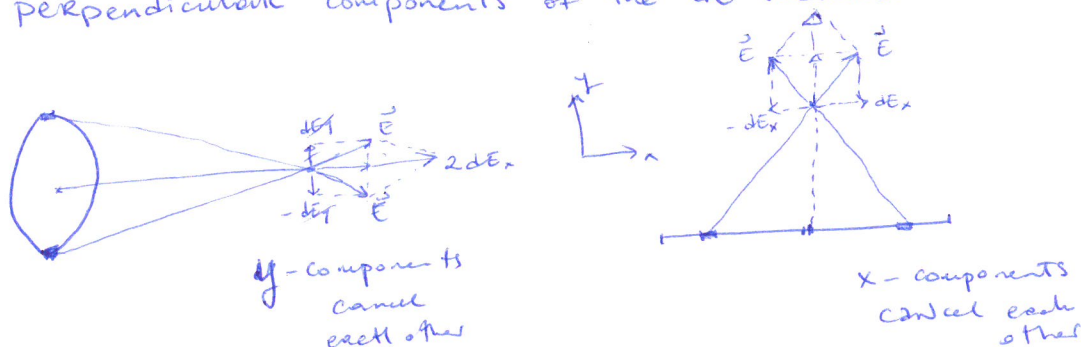 perpendicular components of the
E⃗
E⃗
-dEx
dEx
y
x
dEy
E⃗
2dEx
-dEy
E⃗
y-components
cancel
each other
x-components
cancel each
other